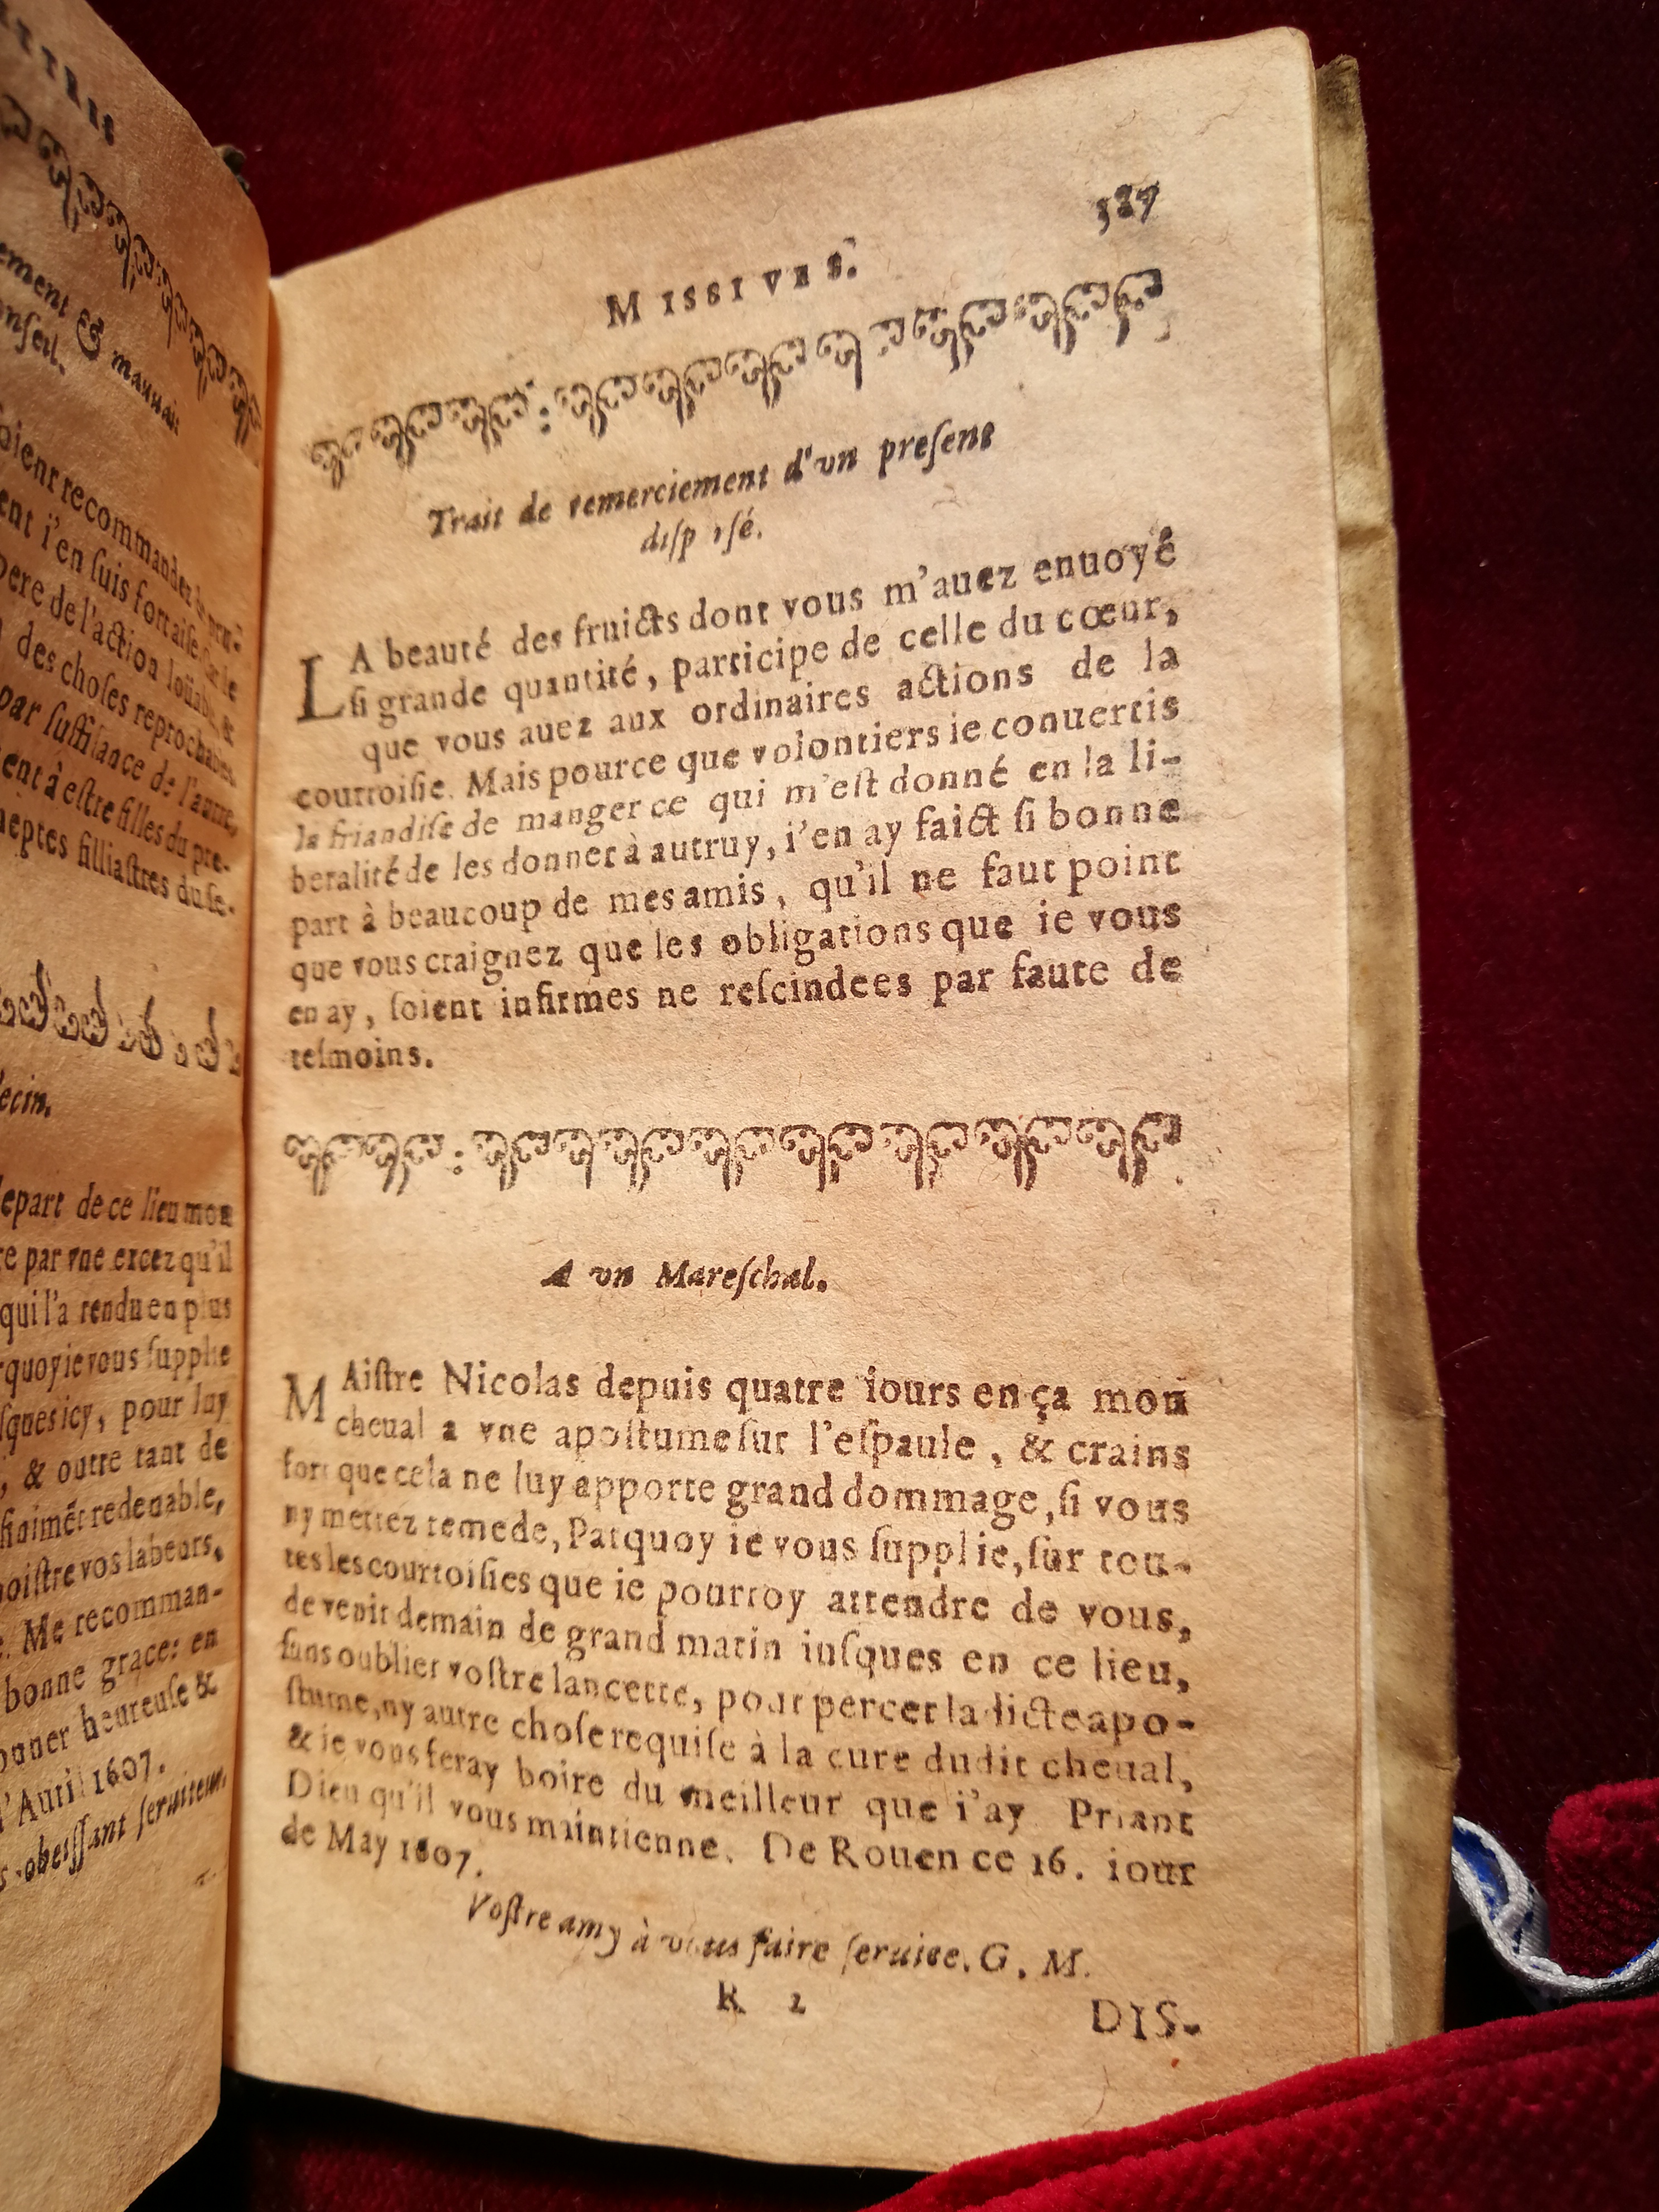 ement & mauuais
onseil.
oient recommander
ent i'en suis fort aise sur le
pere de l'action loüable &
des choses reprochables
par suffisance de l'autre,
ent à estre filles du pre-
neptes filliastres du se-
ecin.
depart de ce lieu mon
re par vne excez qu'il
qui l'a rendu en plus
rquoy ie vous supplie
sques icy, pour luy
, & outre tant de
redeuable,
noistre vos labeurs.
. Me recomman-
bonne grace: en
onner heureuse &
d'Auril 1607.
obeissant seruiteur.
MISSIVES.
Trait de remerciement d'vn present
LA beauté des fruicts dont vous m'auez enuoyé
si grande quantité, participe de celle du cœur,
que vous auez aux ordinaires actions de la
courtoisie. Mais pource que volontiers ie conuertis
la friandise de manger ce qui m'est donné en la li-
beralité de les donner à autruy, i'en ay faict si bonne
part à beaucoup de mes amis, qu'il ne faut point
que vous craignez que les obligations que ie vous
en ay, soient infirmes ne rescindees par faute de
tesmoins.
A vn Mareschal.
MAistre Nicolas depuis quatre iours en ça mon
cheual a vne apostume sur l'espaule, & crains
fort que cela ne luy apporte grand dommage, si vous
ny mettez remede, Parquoy ie vous supplie, sur tou-
tes les courtoisies que ie pourroy attendre de vous,
de venir demain de grand matin iusques en ce lieu,
sans oublier vostre lancette, pour percer la dicte apo-
stume, ny autre chose requise à la cure dudit cheual,
& ie vous feray boire du meilleur que i'ay Priant
Dieu qu'il vous maintienne. De Rouen ce 16. iour
de May 1607.
Vostre amy à vous faire seruice. G. M.
R 2
DIS-